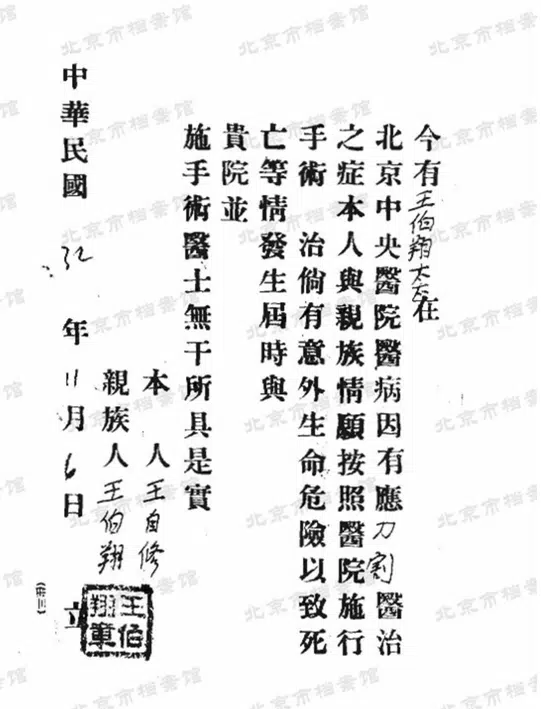 今有王伯翔太太在
北京中央醫院醫病因有應刀割醫治
之症本人與親族情願按照醫院施行
手術 治倘有意外生命危險以致死
亡等情發生屆時與
貴院並
施手術醫士無干所具是實
本人王自修
親族人王伯翔
王伯翔章
中華民國32年11月6日 立
北京市档案馆